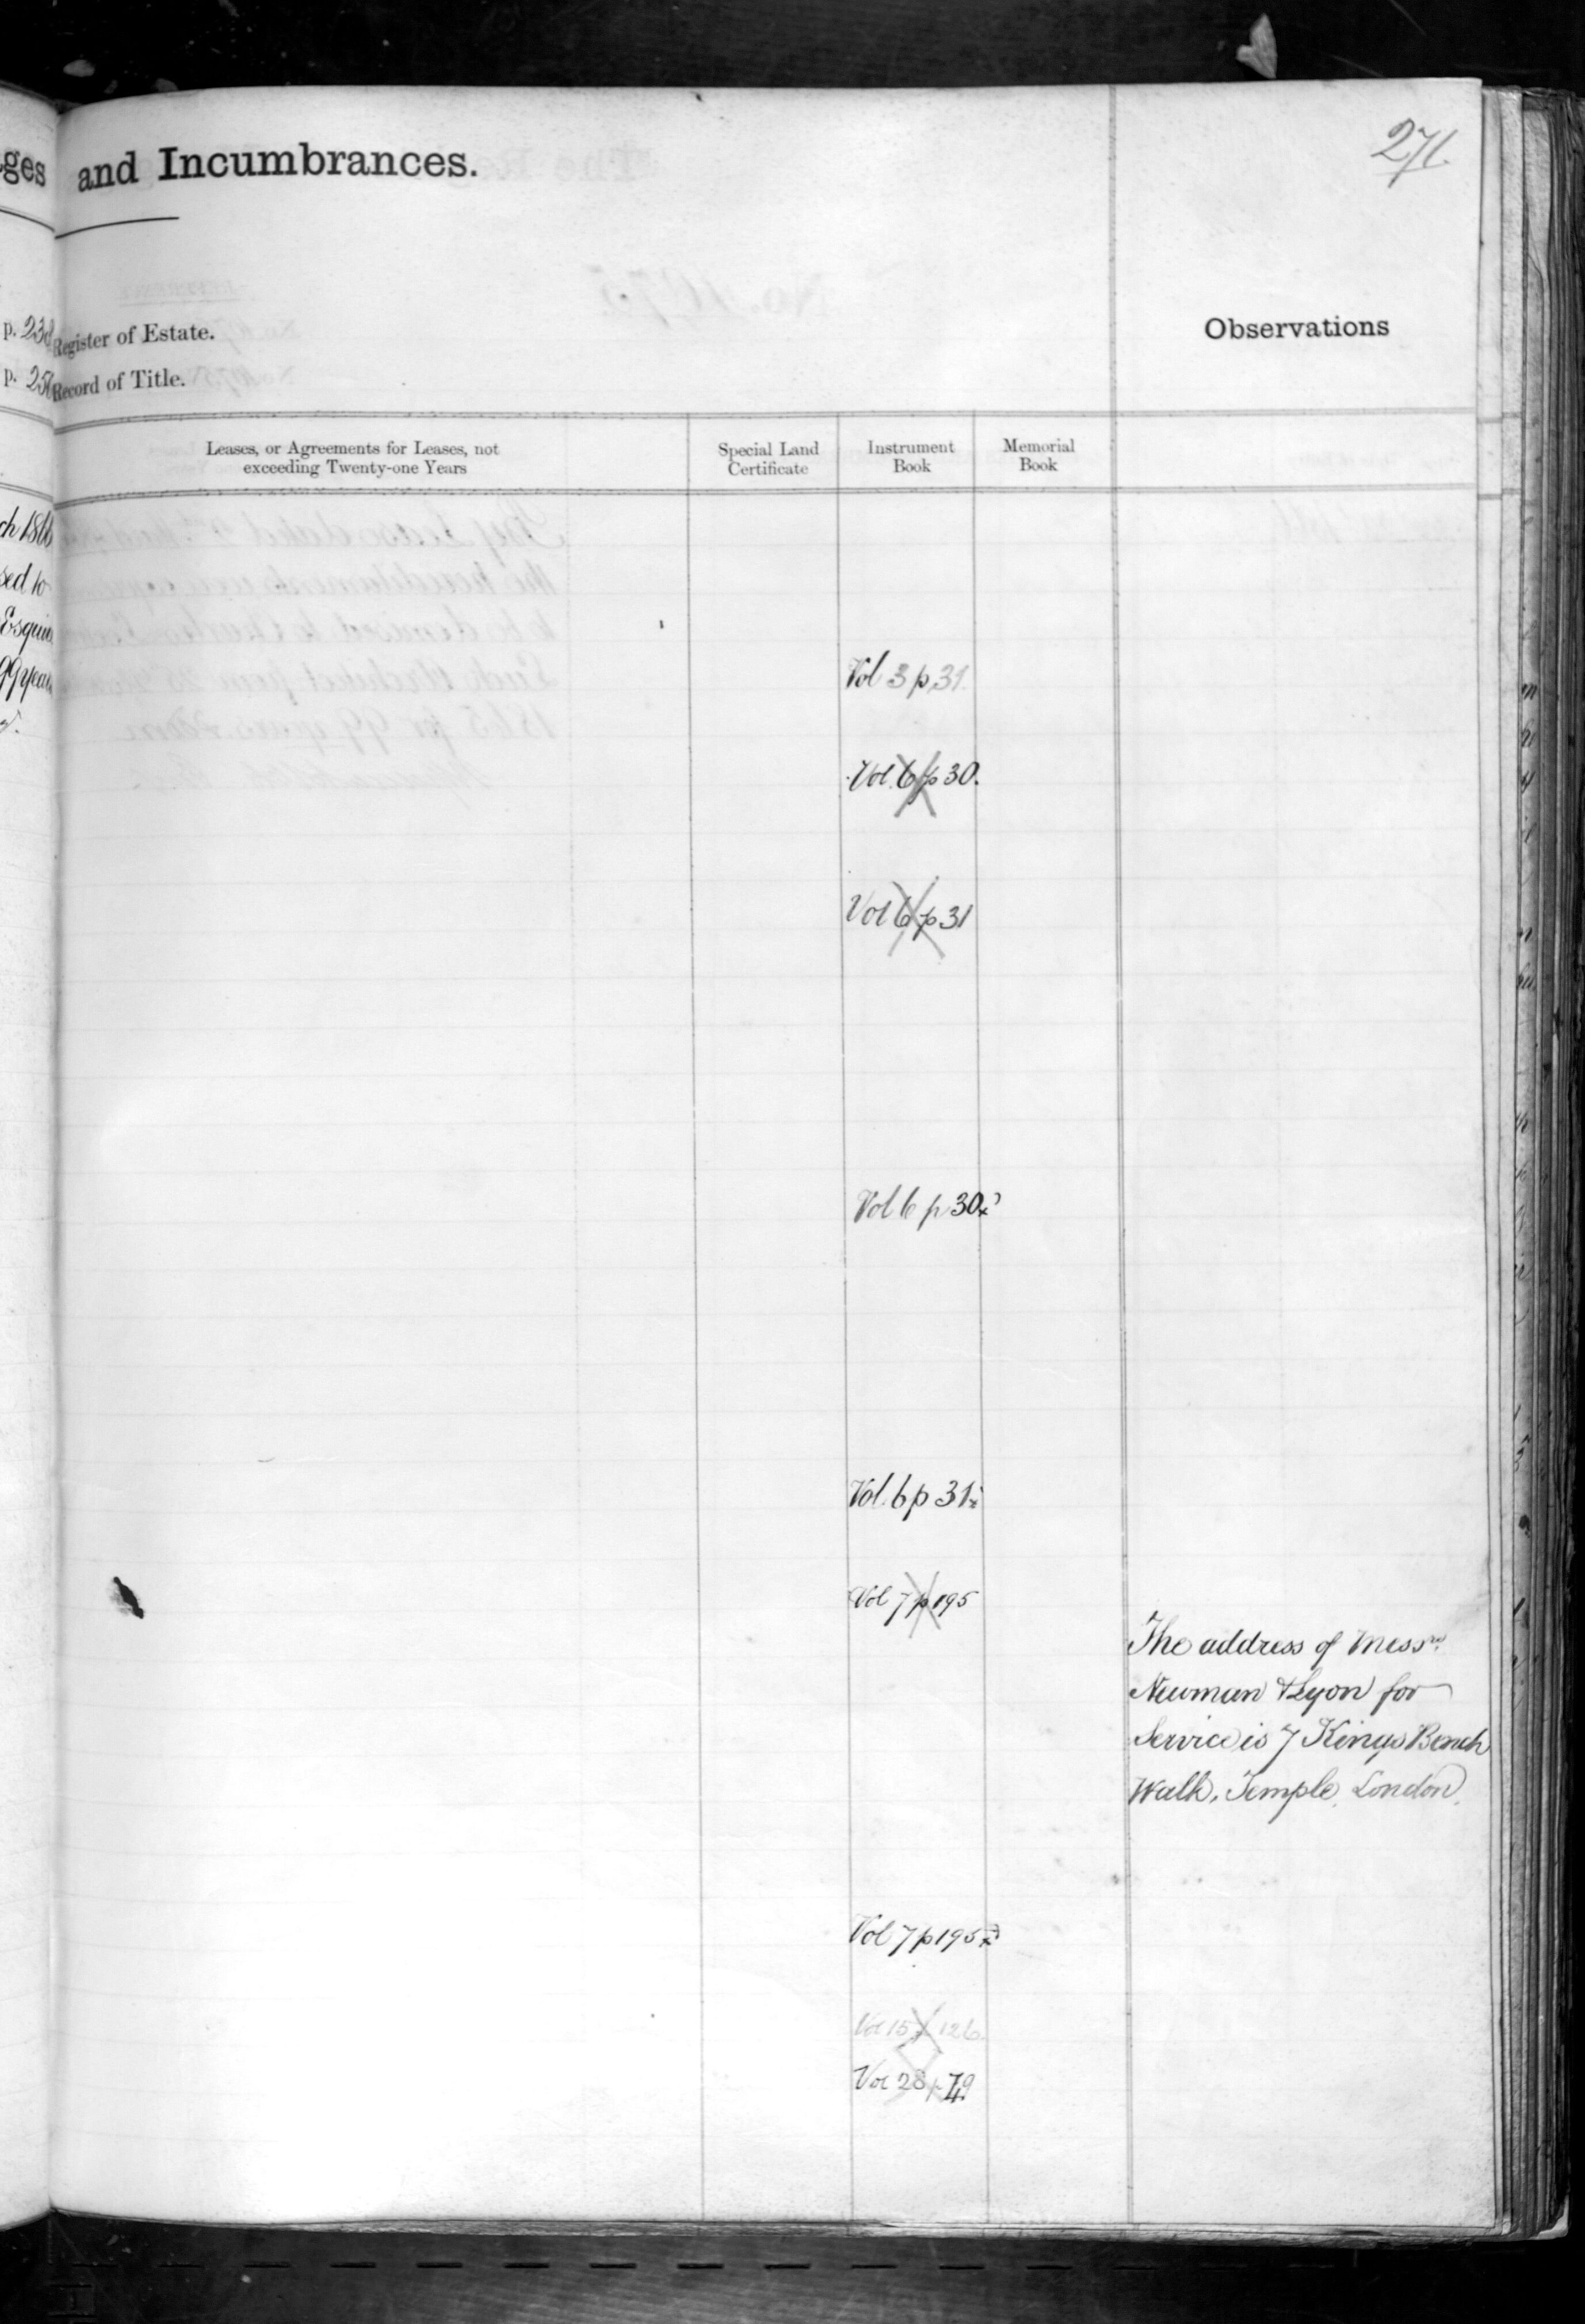 271.
ges and Incumbrances.
p. 238 Register of Estate.
p. 256 Record of Title.
Observations
Leases, or Agreements for Leases, not
exceeding Twenty-one Years
Special Land
Certificate
Instrument
Book
Memorial
Book
ch 186
sed to
Esquire
99 years
Vol 3 p 31.
Vol 6 p 30.
Vol 6 p 31
Vol 6 p 30x
Vol. 6 p 31x
Vol 7 p 195
The address of Messrs.
Newman & Lyon for
Service is 7 Kings Bench
Walk, Temple, London.
Vol 7 p 195x
Vol 15 p 126.
Vol 28 p 49